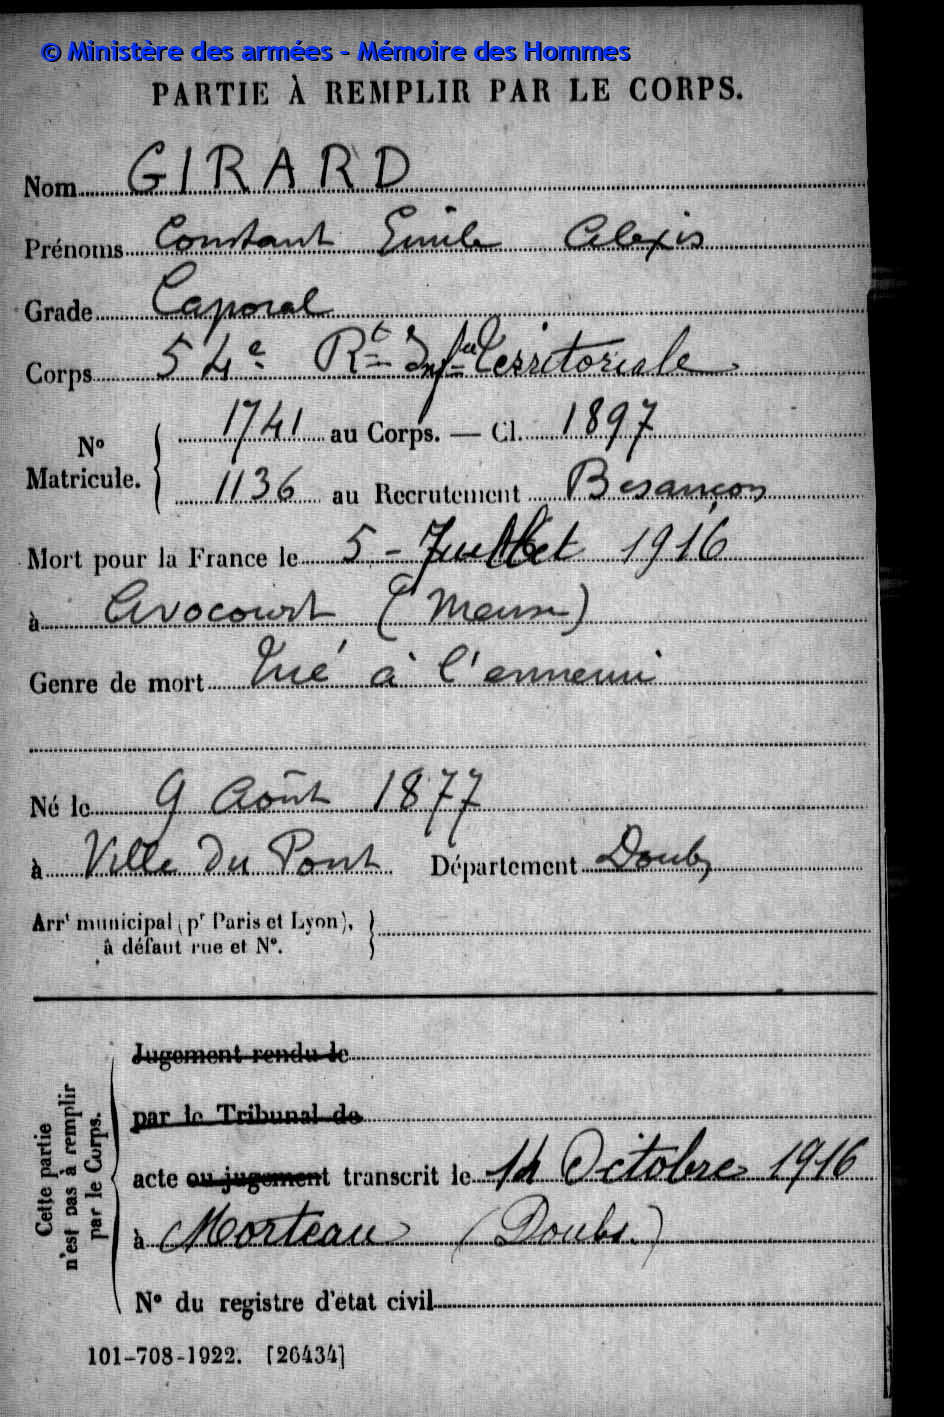 © Ministère des armées - Mémoire des Hommes
PARTIE À REMPLIR PAR LE CORPS.
Nom GIRARD
Prénoms Constant Emile Alexis
Grade Caporal
Corps 54e Rt Infie Territoriale
N° Matricule. 1741 au Corps. — Cl. 1897
1136 au Recrutement Besançon
Mort pour la France le 5 - Juillet 1916
à Avocourt (Meuse)
Genre de mort Tué à l'ennemi
Né le 9 Août 1877
à Ville du Pont Département Doubs
Arrt municipal (pr Paris et Lyon),
à défaut rue et N°.
Cette partie
n'est pas à remplir
par le Corps.
Jugement rendu le
par le Tribunal de
acte ou jugement transcrit le 14 Octobre 1916
à Morteau (Doubs.)
N° du registre d'état civil
101-708-1922. [26434]